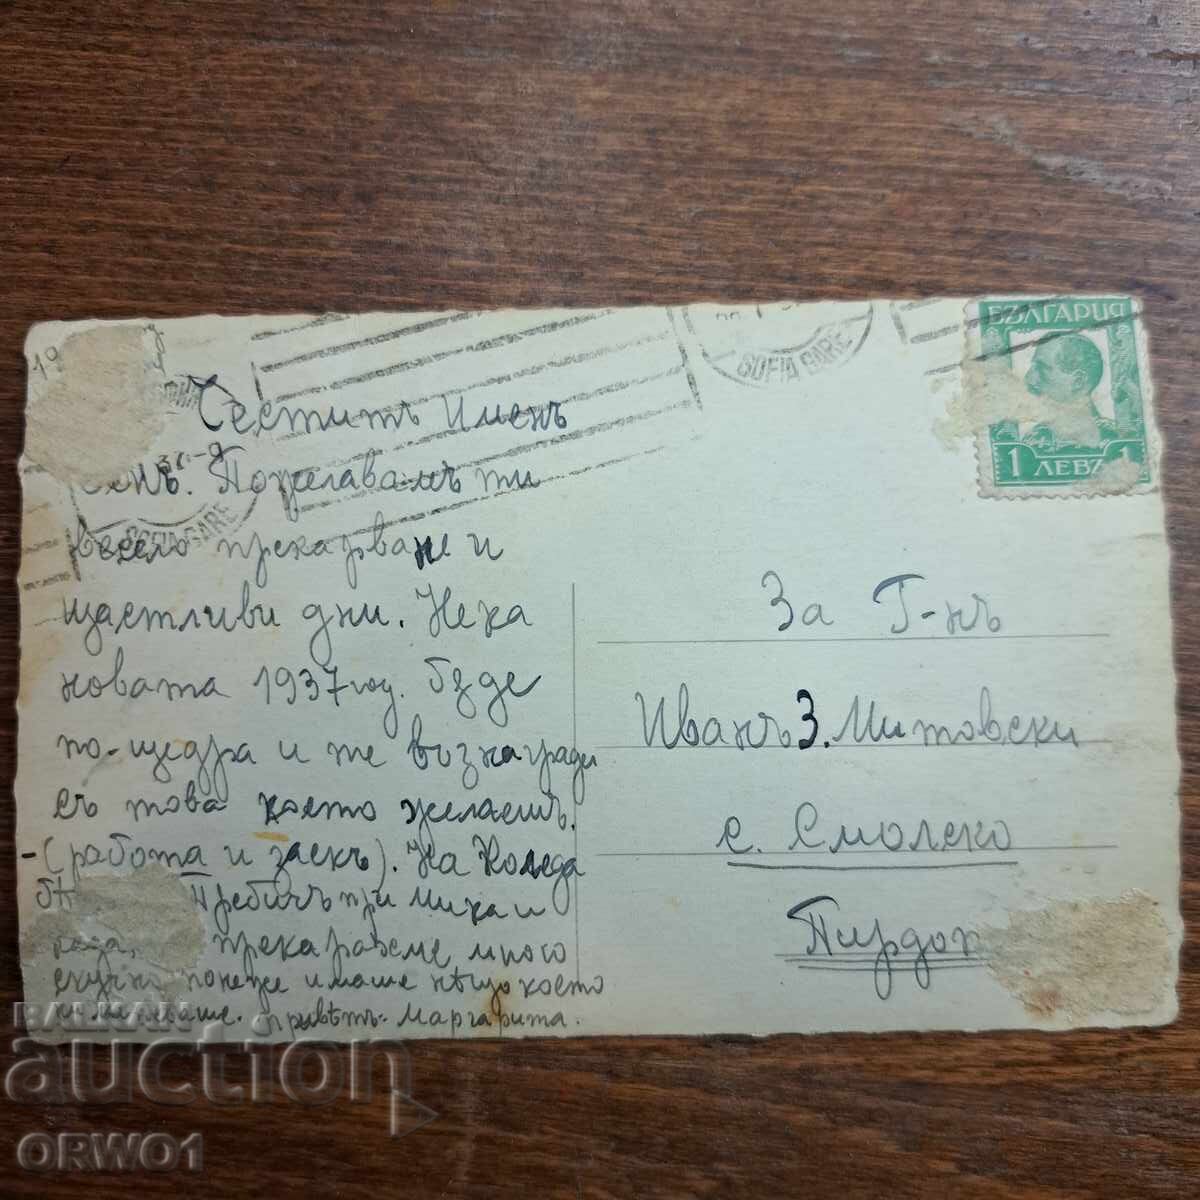 19
Честитъ Именъ
День. Пожелавамъ ти
весело прекарване и
щастливи дни. Нека
новата 1937 год. бѫде
по-щедра и те възнагради
съ това което желаешъ.
-(работа и заекъ). На Коледа
Требичъ при Мика и
прекарахме много
скучно понеже имаше нѣщо което
Привѣтъ. Маргарита.
SOFIA GARE
SOFIA GARE
БЪЛГАРИЯ
1 ЛЕВЪ 1
За Г-нъ
Иванъ З. Митовски
с. Смолско
Пирдоп
BALKAN
auction
ORWO1